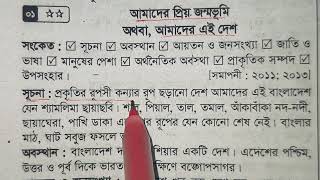 ০১ ☆☆
আমাদের প্রিয় জন্মভূমি
অথবা, আমাদের এই দেশ
সংকেত : ☑ সূচনা ☑ অবস্থান ☑ আয়তন ও জনসংখ্যা ☑ জাতি ও
ভাষা ☑ মানুষের পেশা ☑ অর্থনৈতিক অবস্থা ☑ প্রাকৃতিক সম্পদ ☑
উপসংহার। [সমাপনী : ২০১১; ২০১৩]
সূচনা : প্রকৃতির রূপসী কন্যার রূপ ছড়ানো দেশ আমাদের এই বাংলাদেশ
যেন শ্যামলিমা ছায়াছবি। পিয়াল, তাল, তমাল, আঁকাবাঁকা নদ-নদী,
ছায়াঘেরা, পাখি ডাকা রূপের যেন কোনো শেষ নেই। বাংলার
মাঠ, ঘাট সবুজ ফসলে
অবস্থান : বাংলাদেশ শিয়ার একটি দেশ। এদেশের পশ্চিম,
উত্তর ও পূর্ব দিকে ভারত ক্ষিণে বঙ্গোপসাগর।